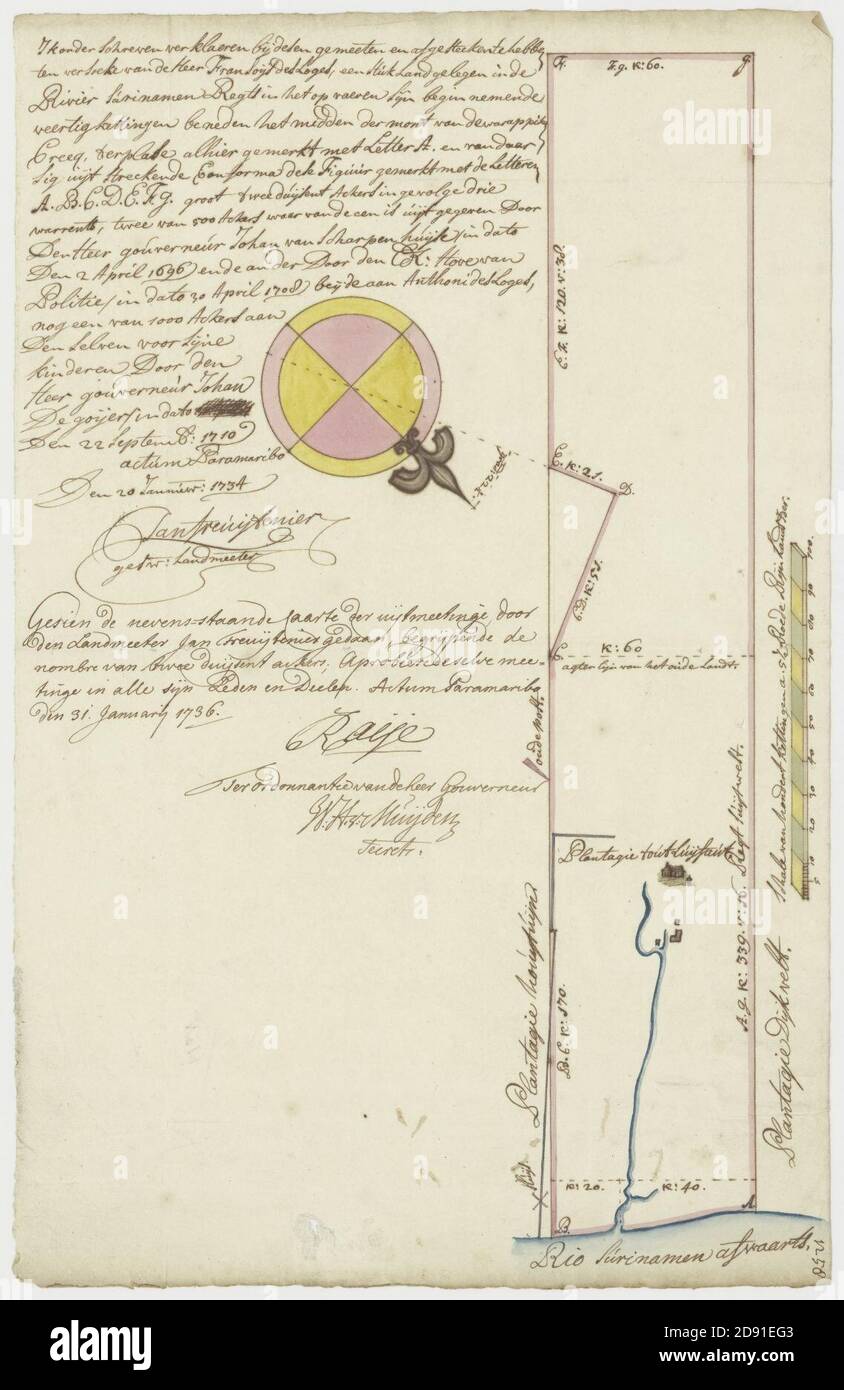 Ik onder Schreven verklaeren bij desen gemeeten en afgesteeken te hebben
ten versoeke van de Heer Fransoijs des Loges, een stuk Land gelegen in de
Rivier Surinamen Regts in het op vaeren sijn begin nemende
veertig kettingen beneden het midden der mont van de warappite
Creeq, ter plaese alhier gemerkt met Letter A. en van daer
sig uijt streckende Conform a dese Figuur gemerkt met de Letteren
A. B. C. D. E. F. g. groot twee duijsent Ackers in gevolge drie
warrents, twee van 500 Ackers waer van de een is uijt gegeven Door
Den Heer gouverneur Johan van Scharpenhuijse / in dato
Den 2 April 1696 / en de ander Door den Hove van
Politie / in dato 30 April 1708 / beijde aan Anthoni des Loges,
nog een van 1000 Ackers aan
Den selven voor sijne
kinderen Door den
Heer gouverneur Johan
De goijer / in dato
Den 22 Septemb: 1710
actum Paramaribo
Den 20 Januwer: 1734
Jan Freuijtenier
gesw: Landmeeter
Gesien de nevens=staande Caarte der uijtmeetinge, door
den Landmeeter Jan Freuijtenier gedaan, begrijpende de
nombre van twee duijsent ackers, Aprobeere deselve mee=
tinge in alle sijn Leden en Deelen. Actum Paramaribo
den 31. January 1736.
Raije
Ter ordonnantie van de heer Gouverneur
Secrets.
F.
F. g. K: 60.
g.
E. F. K: 120. v: 38.
E. K: 21.
D.
C. D. K: 51.
C.
K: 60
agter lijn van het oude Landt:
oude post.
Plantagie tout luij faut
Plantagie
B. C. K: 170.
A. g. K: 339. v: 16. Regt luijt welt.
Plantagie Dijkvelt.
Schale van hondert kettingen a 5½ Roede Reijnlandtser.
5 10 20 30 40 50 60 70 80 90 100.
K: 20.
K: 40.
B.
A.
Rio Surinamen afwaarts.
alamy
Image ID: 2D91EG3
www.alamy.com